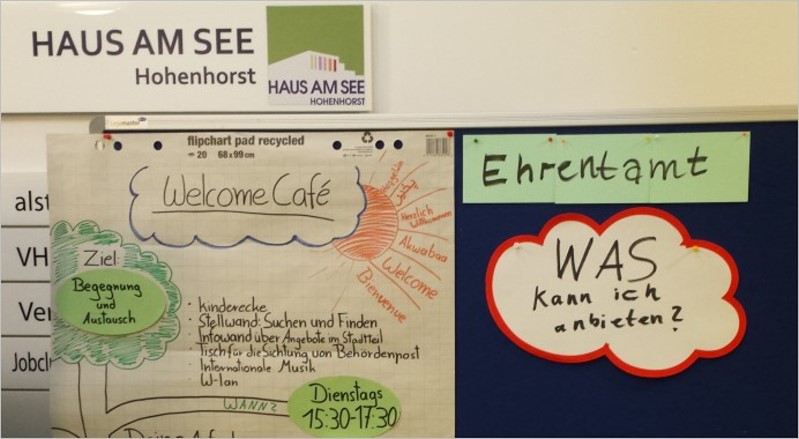 HAUS AM SEE
Hohenhorst
HAUS AM SEE
HOHENHORST
legamaster
flipchart pad recycled
20 68x99cm
Welcome Café
Herzlich
Willkommen
Akwabaa
Welcome
Bienvenue
Ziel:
Begegnung
und
Austausch
· Kinderecke
· Stellwand: Suchen und Finden
· Infowand über Angebote im Stadtteil
· Tisch für die Sichtung von Behördenpost
· Internationale Musik
· W-lan
WANN?
Dienstags
15:30-17:30
Ehrentamt
WAS
kann ich
anbieten?
alst
VH
Ver
Jobcl